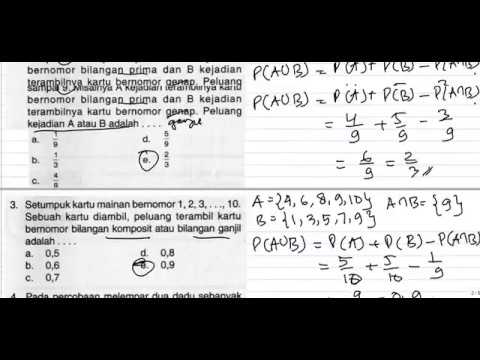 bernomor bilangan prima dan B kejadian
terambilnya kartu bernomor genap. Peluang
sampai 9. Misalnya A kejadian terambilnya kartu
bernomor bilangan prima dan B kejadian
terambilnya kartu bernomor genap. Peluang
kejadian A atau B adalah . . . . ganjil
a. 1/9 d. 5/9
b. 1/3 e. 2/3
c. 4/9
3. Setumpuk kartu mainan bernomor 1, 2, 3, . . ., 10.
Sebuah kartu diambil, peluang terambil kartu
bernomor bilangan komposit atau bilangan ganjil
adalah . . . .
a. 0,5 d. 0,8
b. 0,6 e. 0,9
c. 0,7
4. Pada percobaan melempar dua dadu sebanyak
P(A∪B) = P(A) + P(B) − P(A∩B)
P(A∪B) = P(A) + P(B) − P(A∩B)
= 4/9 + 5/9 − 3/9
= 6/9 = 2/3
A = {4, 6, 8, 9, 10} A∩B = {9}
B = {1, 3, 5, 7, 9}
P(A∪B) = P(A) + P(B) − P(A∩B)
= 5/10 + 5/10 − 1/9
= 9 = 0,9